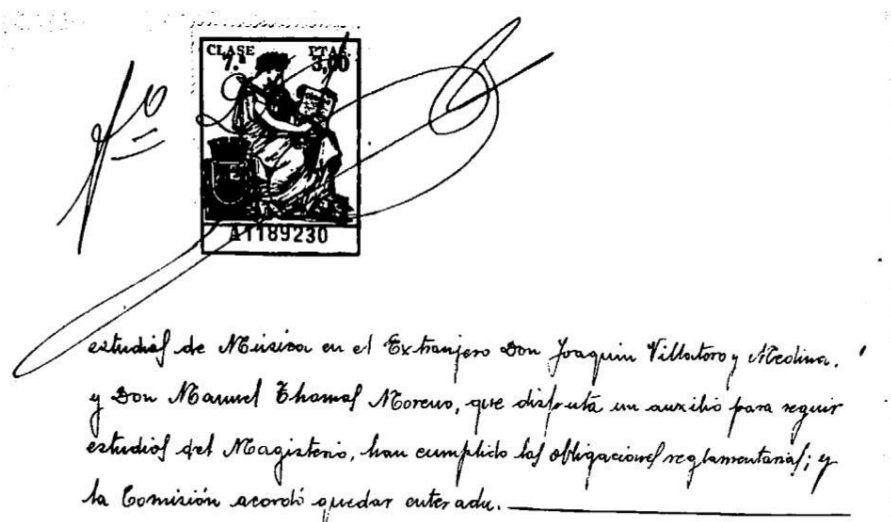 CLASE 7.ª PTAS. 3,00
A1189230
estudios de Música en el Extranjero Don Joaquin Villatoro y Medina.
y Don Manuel Thomas Moreno, que disfruta un auxilio para seguir
estudios del Magisterio, han cumplido las obligaciones reglamentarias; y
la Comisión acordó quedar enterada.